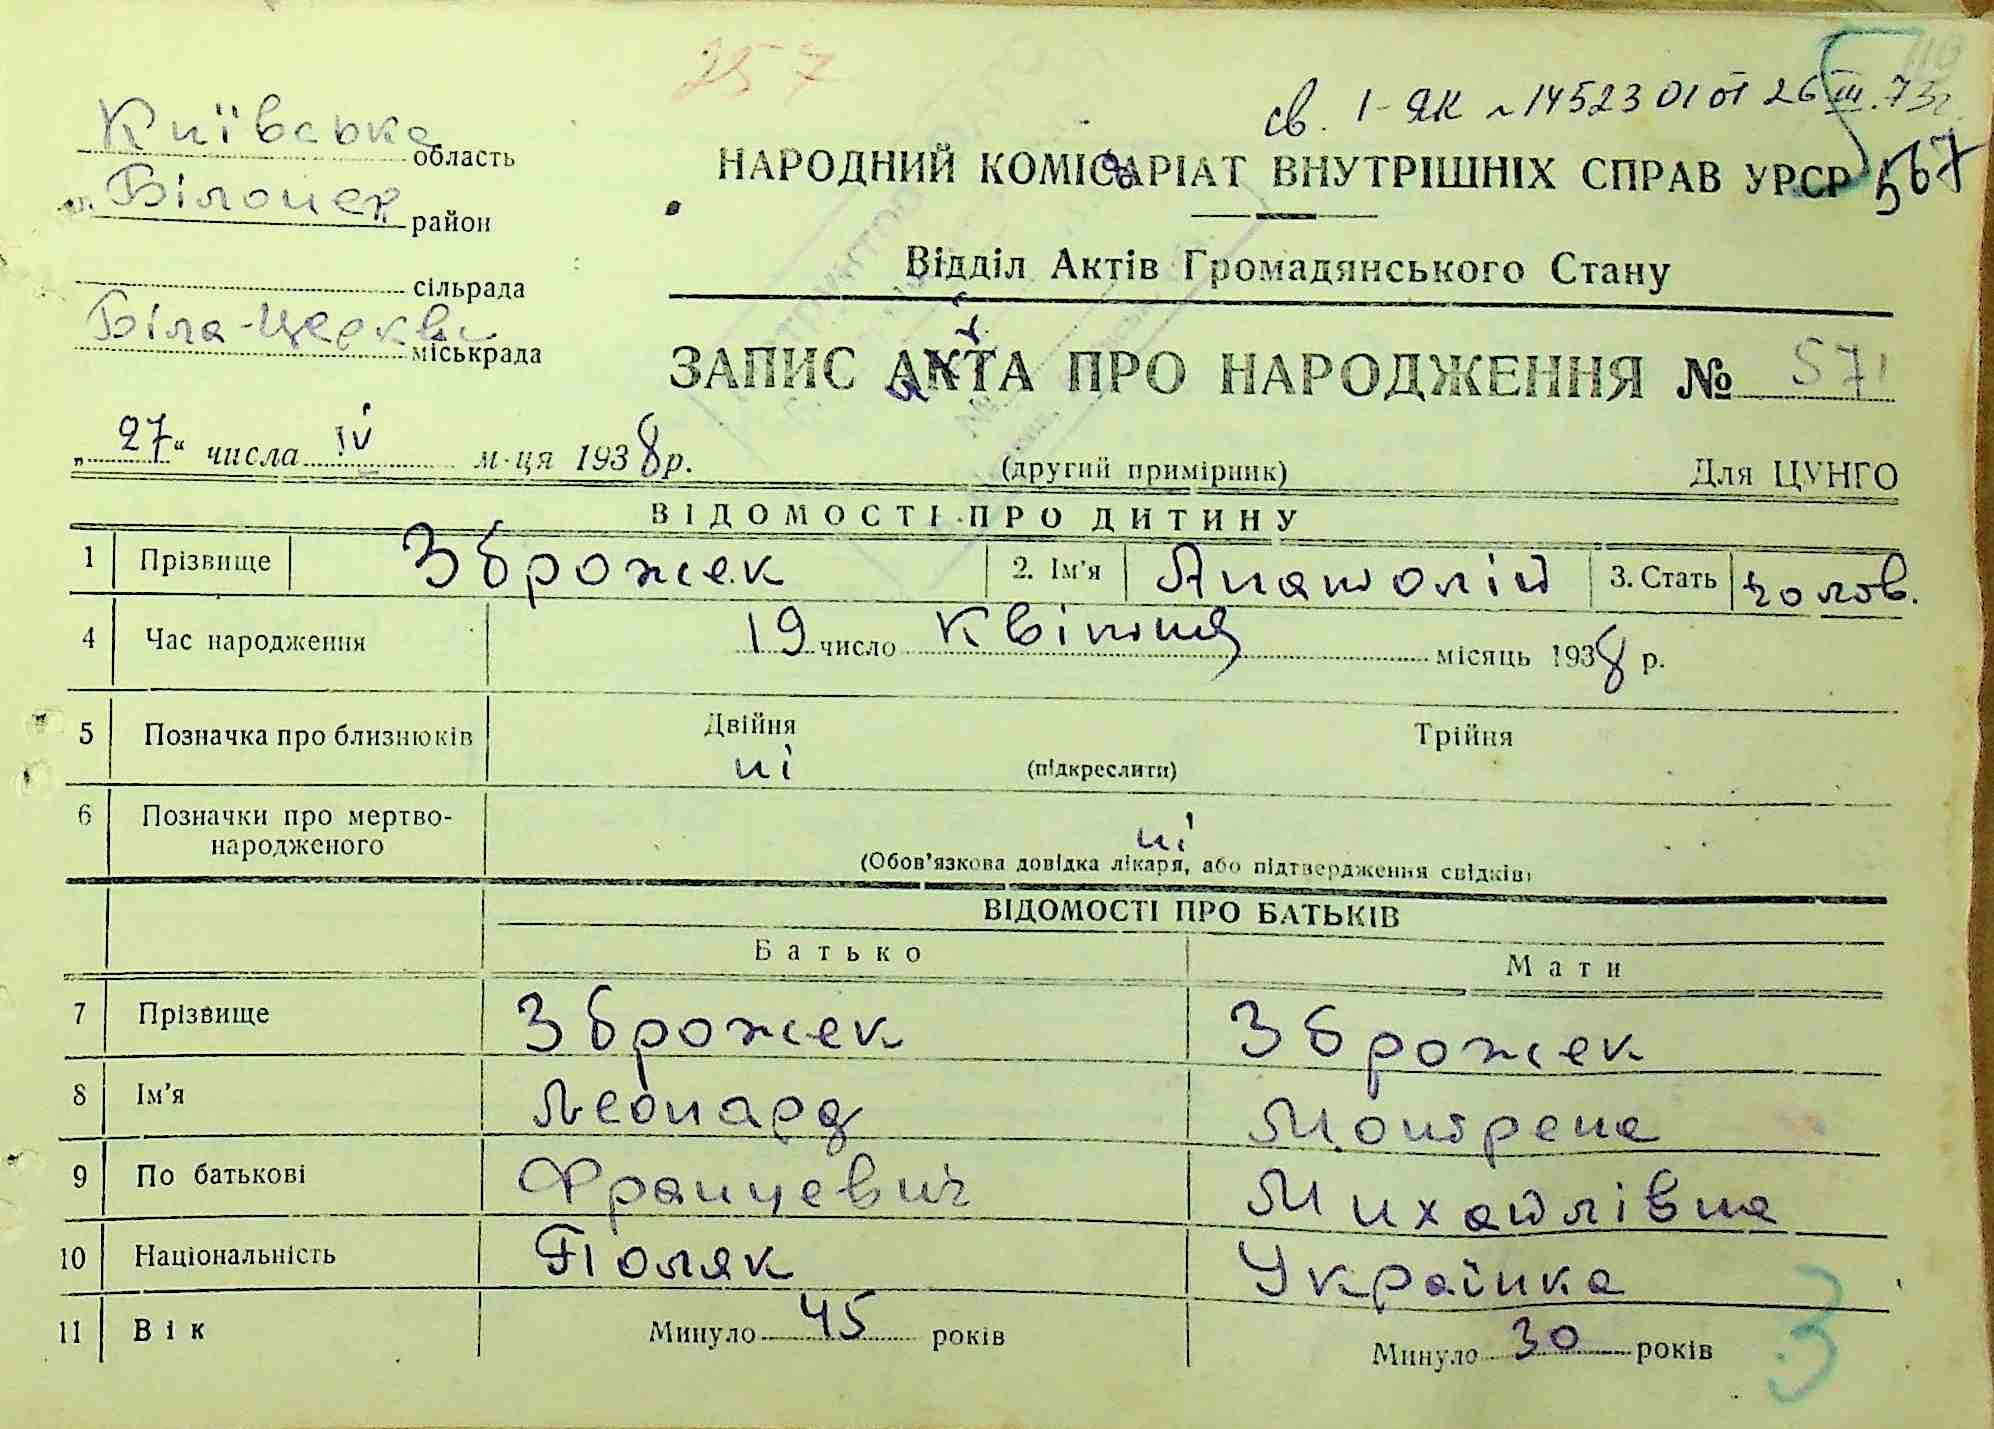 257
110
св. I-ЯК №1452301 от 26 III.73г.
Київська область
Білоцер район
567
НАРОДНИЙ КОМІСАРІАТ ВНУТРІШНІХ СПРАВ УРСР
сільрада
Відділ Актів Громадянського Стану
Біла-Церква міськрада
ЗАПИС АКТА ПРО НАРОДЖЕННЯ № 571
„27“ числа IV м-ця 1938 р.
(другий примірник)
Для ЦУНГО
ВІДОМОСТІ ПРО ДИТИНУ
1 Прізвище Зброжек 2. Ім'я Анатолій 3. Стать чолов.
4 Час народження 19 число Квітня місяць 1938 р.
5 Позначка про близнюків Двійня Трійня
ні (підкреслити)
6 Позначки про мертво-
народженого ні
(Обов'язкова довідка лікаря, або підтвердження свідків)
ВІДОМОСТІ ПРО БАТЬКІВ
Батько Мати
7 Прізвище Зброжек Зброжек
8 Ім'я Леонард
9 По батькові Францевич Михайлівна
10 Національність Поляк Українка
11 Вік Минуло 45 років Минуло 30 років
3